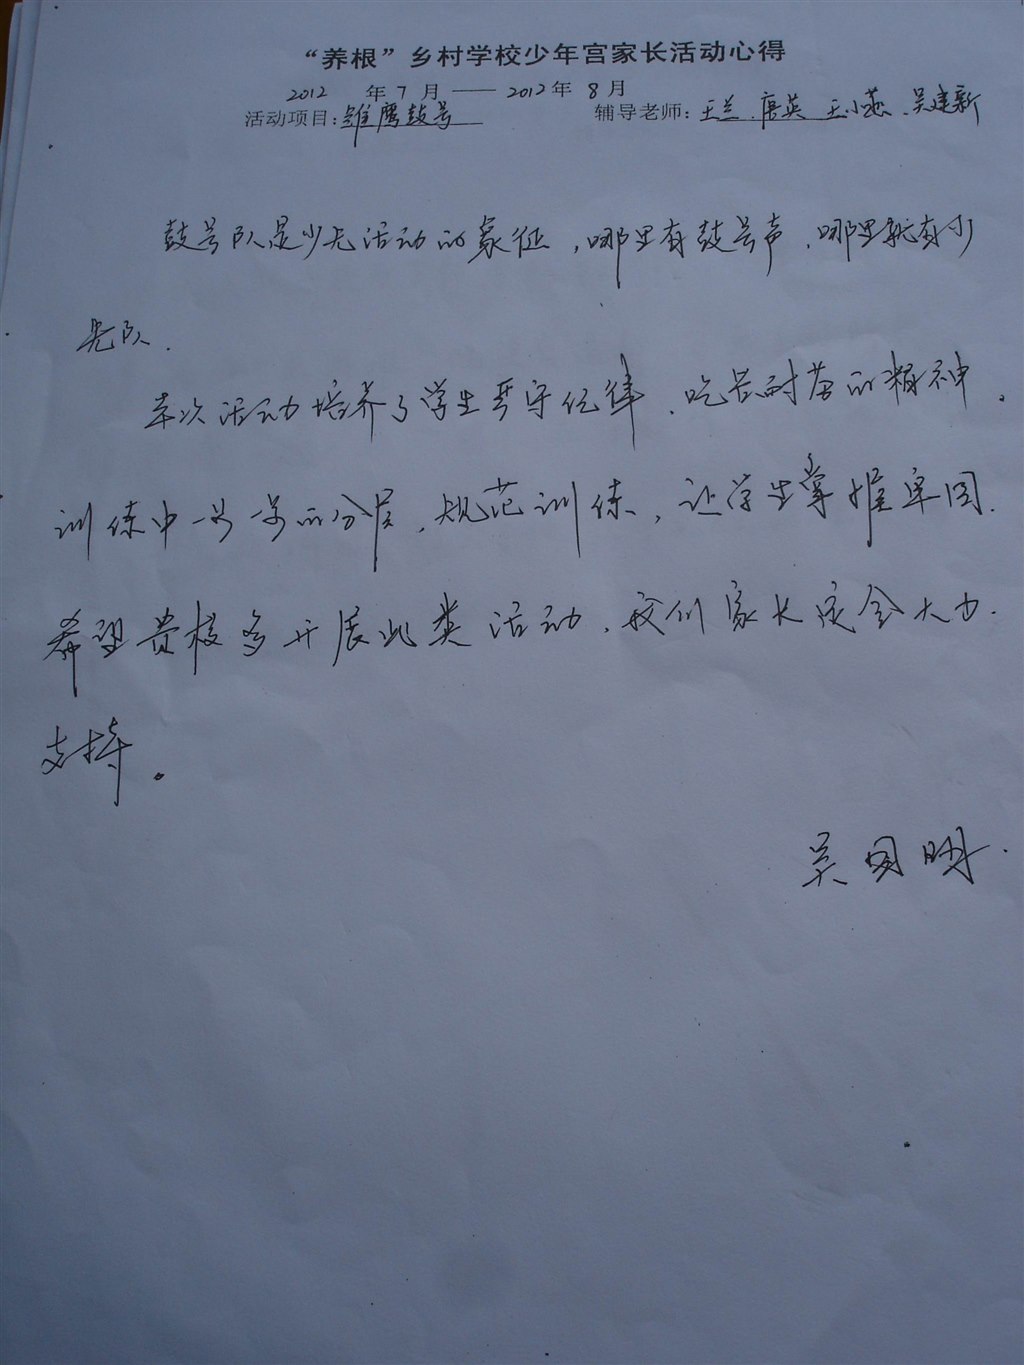 “养根”乡村学校少年宫家长活动心得
2012 年 7 月 —— 2012年 8 月
活动项目：雏鹰鼓号 辅导老师：王兰、唐英、王小燕、吴建新
鼓号队是少先活动的象征，哪里有鼓号声，哪里就有少
先队.
本次活动培养了学生严守纪律、吃苦耐劳的精神。
训练中一步一步的分层，规范训练，让学生掌握牢固.
希望贵校多开展此类活动，我们家长定会大力
支持。
吴国明.